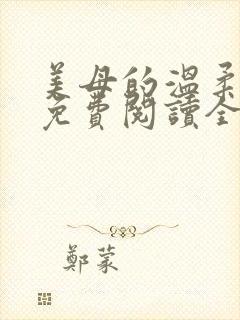 美母的溫柔
免費閱讀全
鄭蒙